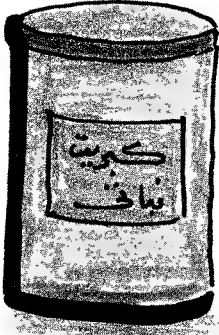 كبريت
نباتي